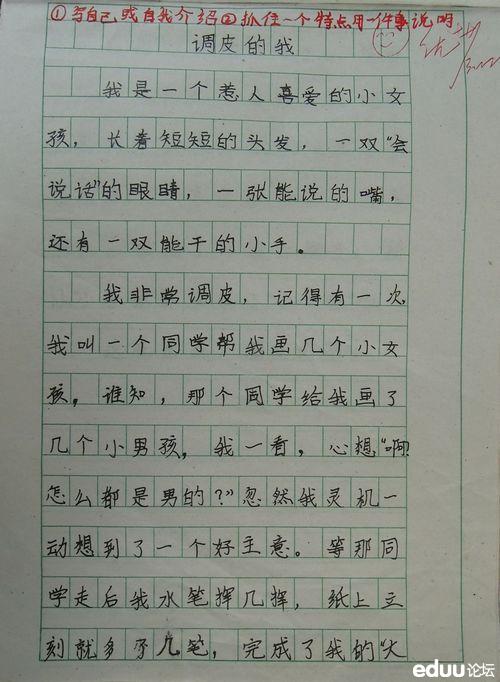 ①写自己或自我介绍②抓住一个特点用一件事说明
调皮的我
我是一个惹人喜爱的小女
孩，长着短短的头发，一双“会
说话”的眼睛，一张能说的嘴，
还有一双能干的小手。
我非常调皮，记得有一次
我叫一个同学帮我画几个小女
孩。谁知，那个同学给我画了
几个小男孩，我一看，心想“啊
怎么都是男的？”忽然我灵机一
动想到了一个好主意。等那同
学走后我水笔挥几挥，纸上立
刻就多了几笔，完成了我的“大
eduu论坛